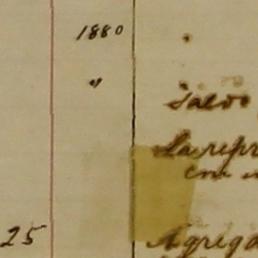 1880
"
Salvo
La repr
con
25 Agrega